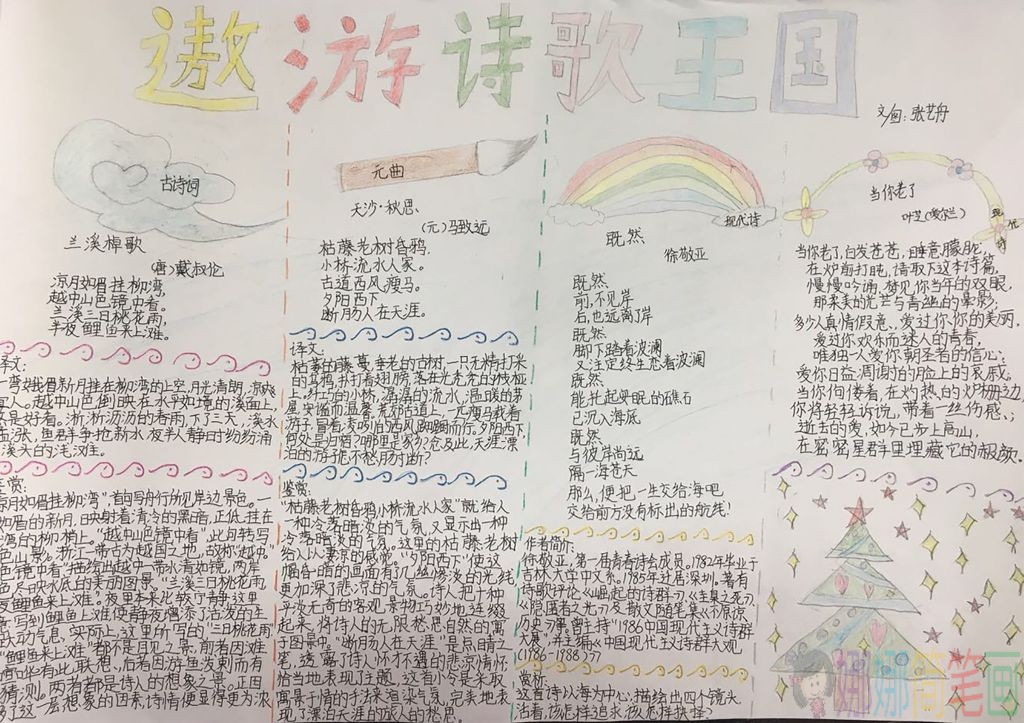 遨游诗歌王国
文/画:张艺舟
古诗词
兰溪棹歌
(唐)戴叔伦
凉月如眉挂柳湾,
越中山色镜中看。
兰溪三日桃花雨,
半夜鲤鱼来上滩。
译文:
一弯娥眉新月挂在柳湾的上空,月光清朗,凉爽
宜人。越中山色倒映在水平如境的溪面上,
煞是好看。淅淅沥沥的春雨,下了三天,溪水
猛涨,鱼群争抢新水,夜半人静时纷纷涌
溪头的浅滩。
鉴赏:
凉月如眉挂柳湾",首句写舟行所见岸边景色。一
如眉的新月,映射着清冷的黑暗,正低挂在
湾的柳梢上。"越中山色镜中看",此句转写
色山影。浙江一带古为越国之地,故称"越中"
色镜中看"描绘出越中一带水清如镜,两岸
色尽映水底的美丽图景。"兰溪三日桃花雨
夜鲤鱼来上滩",夜里本来比较宁静,这里
写到鲤鱼上滩,使静夜增添了活泼的生
跃动气息,实际上,这里所写的"三日桃花雨
"鲤鱼来上滩"都不是目见之景,前者因难
有此联想,后者因游鱼泼剌而有
猜测。两者都是诗人的想象之景。正因
了这一层想象的因素,诗情便显得更为浓
元曲
天沙·秋思
(元)马致远
枯藤老树昏鸦,
小桥流水人家。
古道西风瘦马。
夕阳西下,
断肠人在天涯。
译文:
枯萎的藤蔓,垂老的古树,一只无精打采
的乌鸦,扑打着翅膀,落在光秃秃的枝桠
上。纤巧的小桥,潺潺的流水,温暖的茅
屋安谧而温馨,荒郊古道上,一匹瘦马载着
游子,冒着凌冽的西风踽踽而行。夕阳西下
何处是归宿?哪里是家乡?念及此,天涯漂
泊的游子能不愁肠寸断?
鉴赏:
"枯藤老树昏鸦小桥流水人家"就给人
一种冷落暗淡的气氛,又显示出一种
令落暗淡的气氛。这里的枯藤、老树
给人以妻凉的感觉。"夕阳西下"使这
幅昏暗的画面有几丝惨淡的光线
更加深了悲凉的气氛。诗人把十种
平淡无奇的客观景物巧妙地连缀
起来,将诗人的无限愁思自然的寓
于图景中。"断肠人在天涯"是点睛之
笔,透露了诗人怀才不遇的悲凉情怀
恰当地表现了主题,这首小令是采取
寓景于情的手法来渲染气氛,完美地表
现了漂泊天涯的旅人的愁思。
现代诗
既然
徐敬亚
既然
前,不见岸
后,也远离了岸
既然
脚下踏着波澜
又注定终生恋着波澜
既然
能托起安眠的礁石
已沉入海底
既然
与彼岸尚远
隔一海苍天
那么,便把一生交给海吧
交给前方没有标出的航线!
作者简介:
徐敬亚,第一届青春诗会成员。1982年毕业于
吉林大学中文系。1985年迁居深圳,著有
诗歌评论《崛起的诗群》《生巢之死》
《隐匿者之光》及散文随笔集《不原谅
历史》等。曾主持"1986中国现代主义诗群
大展",并主编《中国现代主义诗群大观
(1986-1988)》
赏析:
这首诗以海为中心,描绘出四个镜头
活着,该怎样追求,该怎样抉择?
现代诗
当你老了
叶芝(爱尔兰)
当你老了,白发苍苍,睡意朦胧,
在炉前打盹,请取下这本诗篇,
慢慢吟诵,梦见你当年的双眼,
那柔美的光芒与青幽的晕影;
多少人真情假意,爱过你的美丽,
爱过你欢乐而迷人的青春,
唯独一人爱你朝圣者的信心;
爱你日益凋谢的脸上的哀戚,
当你佝偻着,在灼热的炉栅边,
你将轻轻诉说,带着一丝伤感,
逝去的爱,如今已步上高山,
在密密星群里埋藏它的赧颜。
娜娜简笔画